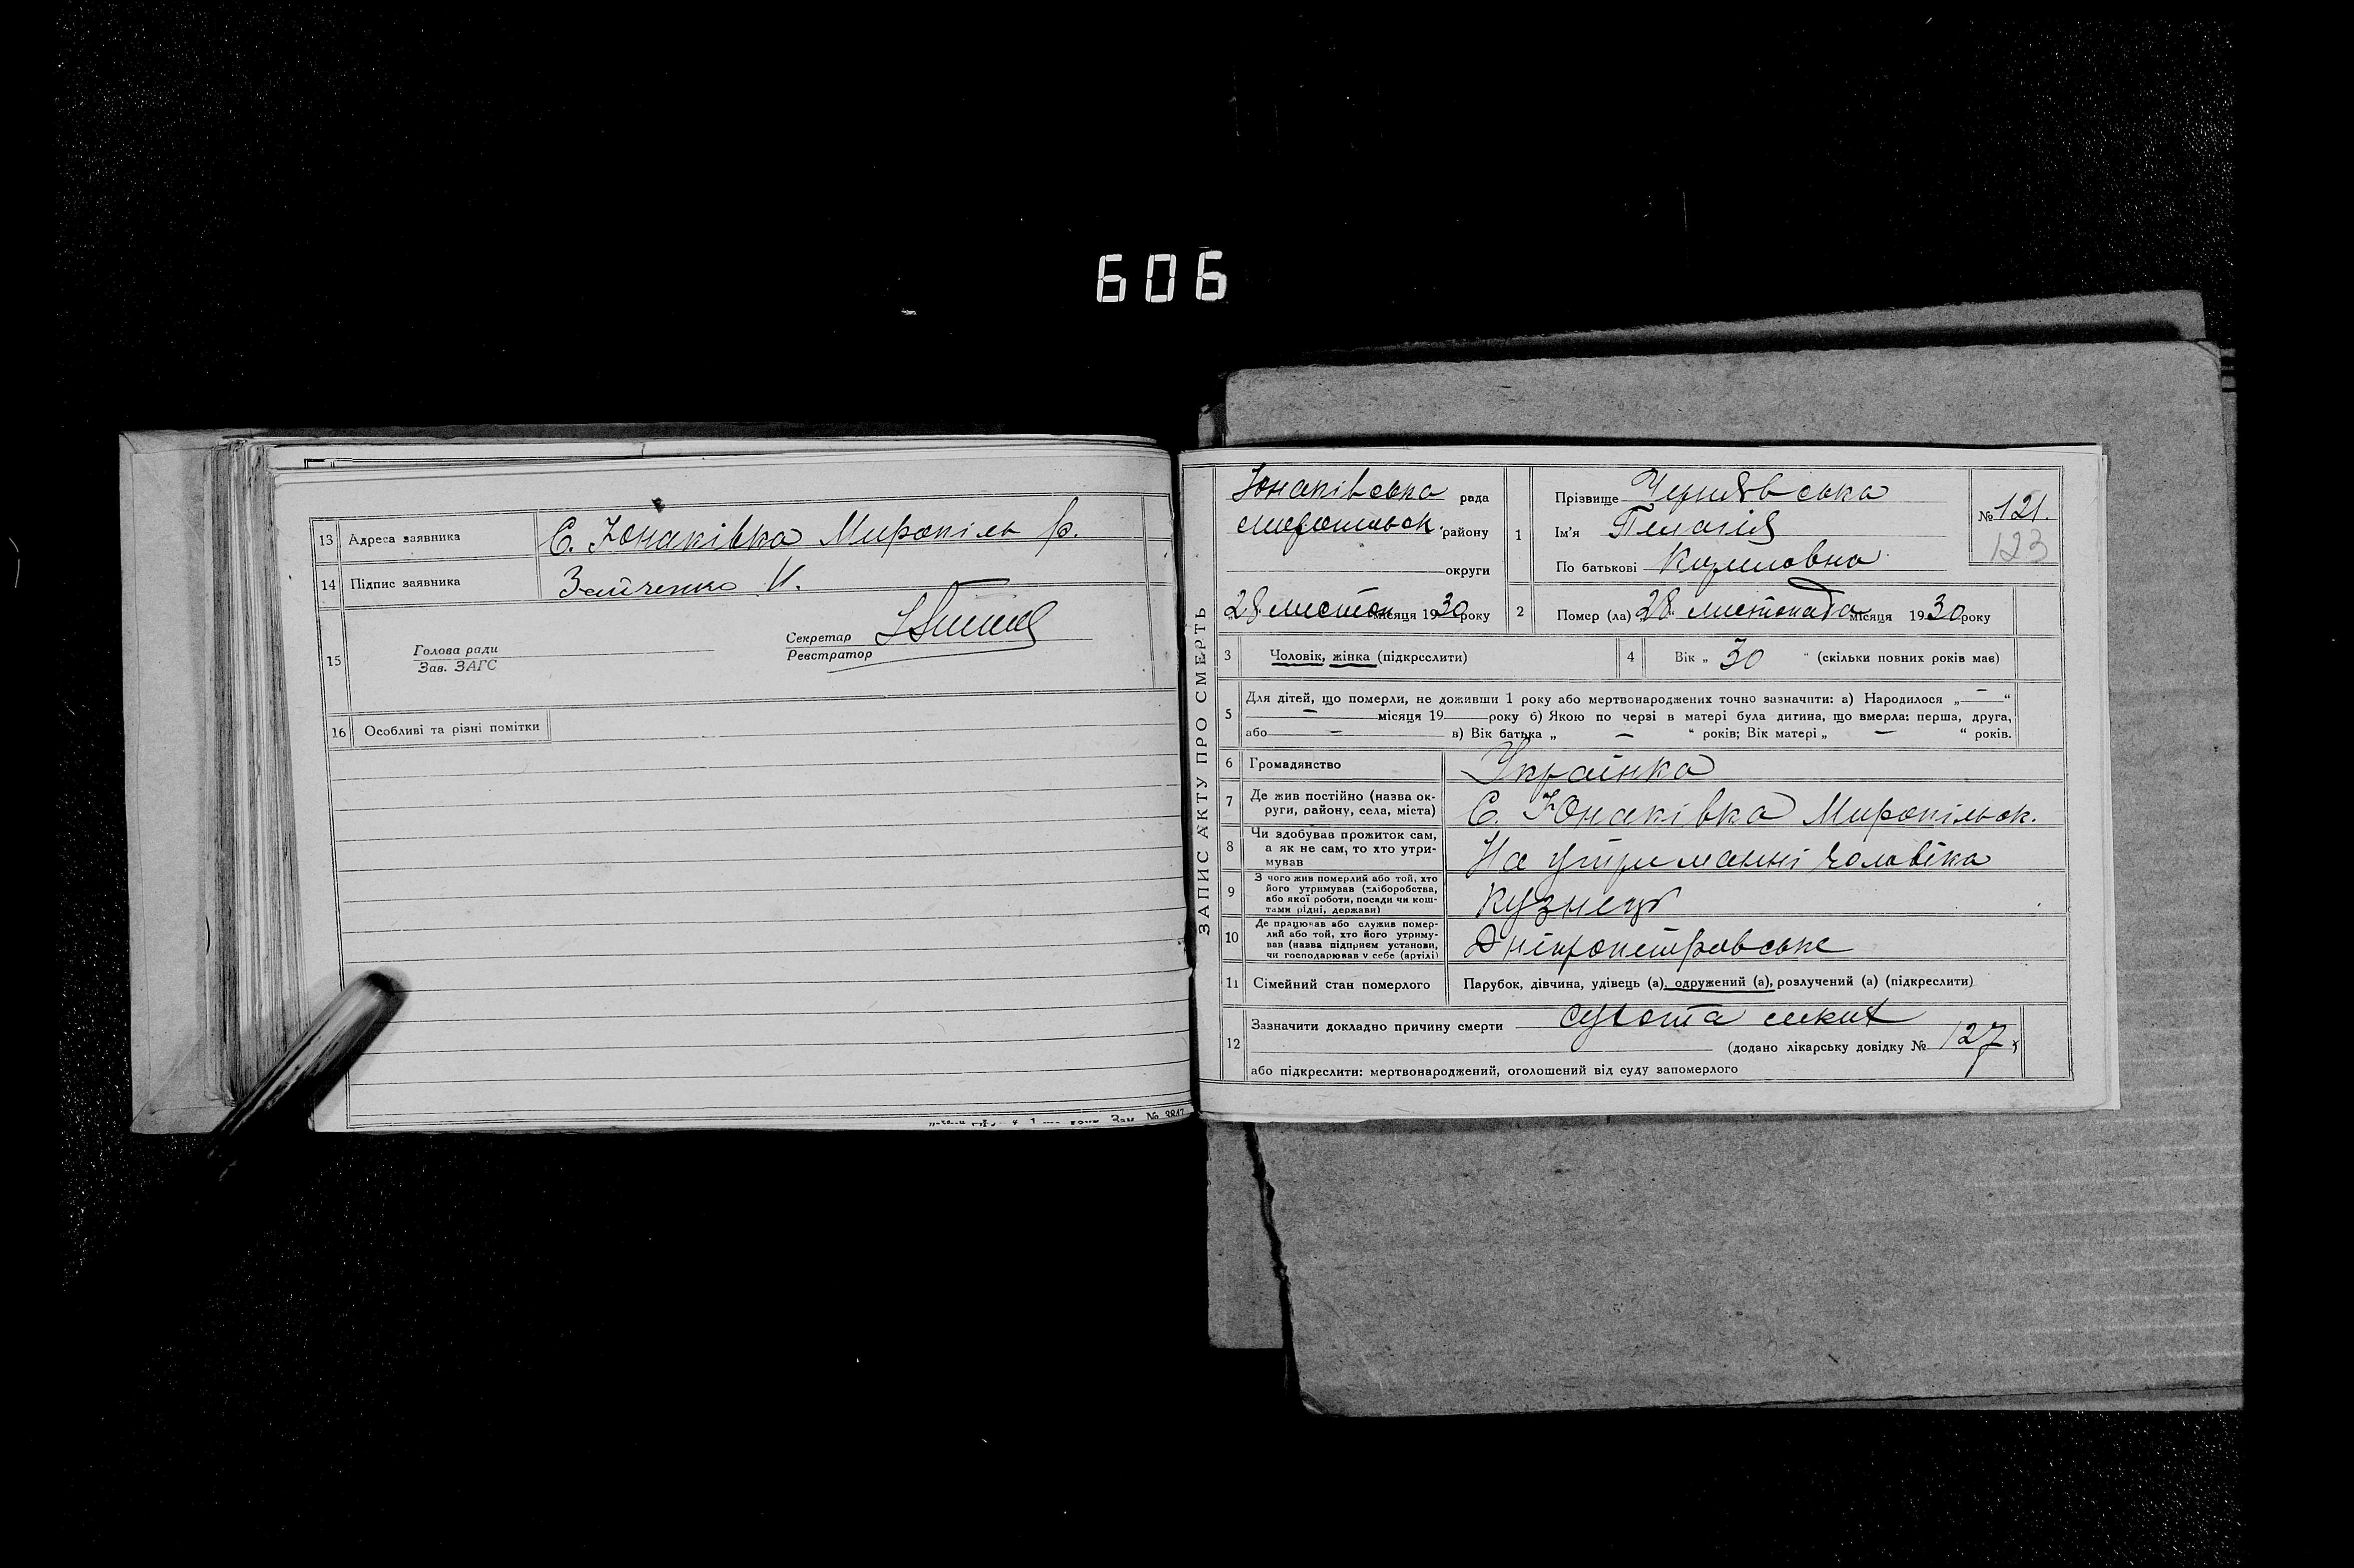 606
13 Адреса заявника С. Юнаківка Миропіль р.
14 Підпис заявника Зайченко И.
15 Голова ради
Зав. ЗАГС
Секретар
Реєстратор
16 Особливі та різні помітки
Зам. № 3817
ЗАПИС АКТУ ПРО СМЕРТЬ
Юнаківська рада
району
округи
„28 листоп місяця 1930 року
1 Прізвище Чернявська
Ім'я Пелагія
По батькові Кириловна
№ 121.
123
2 Помер (ла) „28 листопада місяця 1930 року
3 Чоловік, жінка (підкреслити)
4 Вік „ 30 “ (скільки повних років має)
5 Для дітей, що померли, не доживши 1 року або мертвонароджених точно зазначити: а) Народилося „ — “
— місяця 19 року б) Якою по черзі в матері була дитина, що вмерла: перша, друга,
або — в) Вік батька „ — “ років; Вік матері „ — “ років.
6 Громадянство Українка
7 Де жив постійно (назва ок-
руги, району, села, міста) С. Юнаківка Миропільск.
8 Чи здобував прожиток сам,
а як не сам, то хто утри-
мував На утриманні чоловіка
9 З чого жив померлий або той, хто
його утримував (хліборобства,
або якої роботи, посади чи кош-
тами рідні, держави) Кузнець
10 Де працював або служив помер-
лий або той, хто його утриму-
вав (назва підприєм установи,
чи господарював у себе (артілі) Дніпропетровське
11 Сімейний стан померлого Парубок, дівчина, удівець (а), одружений (а), розлучений (а) (підкреслити)
12 Зазначити докладно причину смерти сухота легких
(додано лікарську довідку № 127
або підкреслити: мертвонароджений, оголошений від суду запомерлого